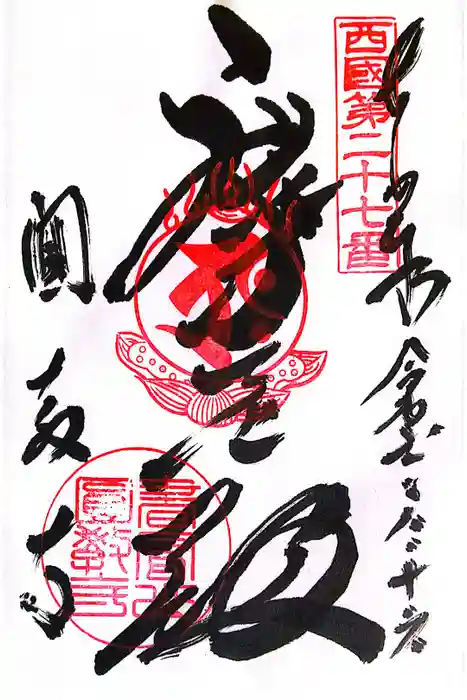 西國第二十七番
奉拝
令和七年八月二十六
摩尼殿
圓教寺
書寫山圓教寺